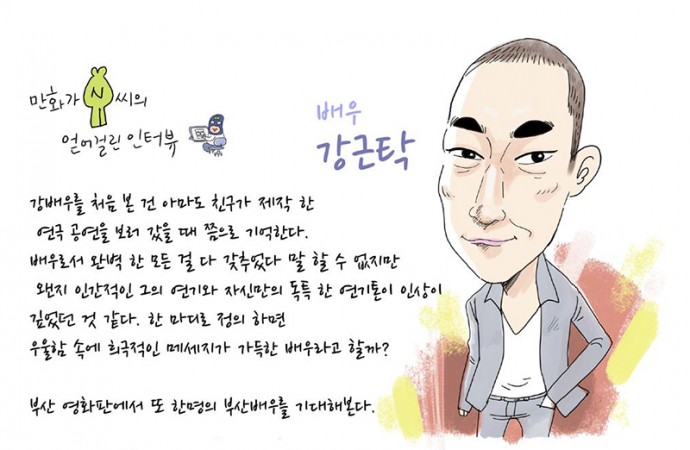 만화가 N 씨의
얻어걸린 인터뷰
배우
강근탁
강배우를 처음 본 건 아마도 친구가 제작 한
연극 공연을 보러 갔을 때 쯤으로 기억한다.
배우로서 완벽 한 모든 걸 다 갖추었다 말 할 수 없지만
왠지 인간적인 그의 연기와 자신만의 독특 한 연기톤이 인상이
깊었던 것 같다. 한 마디로 정의 하면
우울함 속에 희극적인 메세지가 가득한 배우라고 할까?
부산 영화판에서 또 한명의 부산배우를 기대해본다.